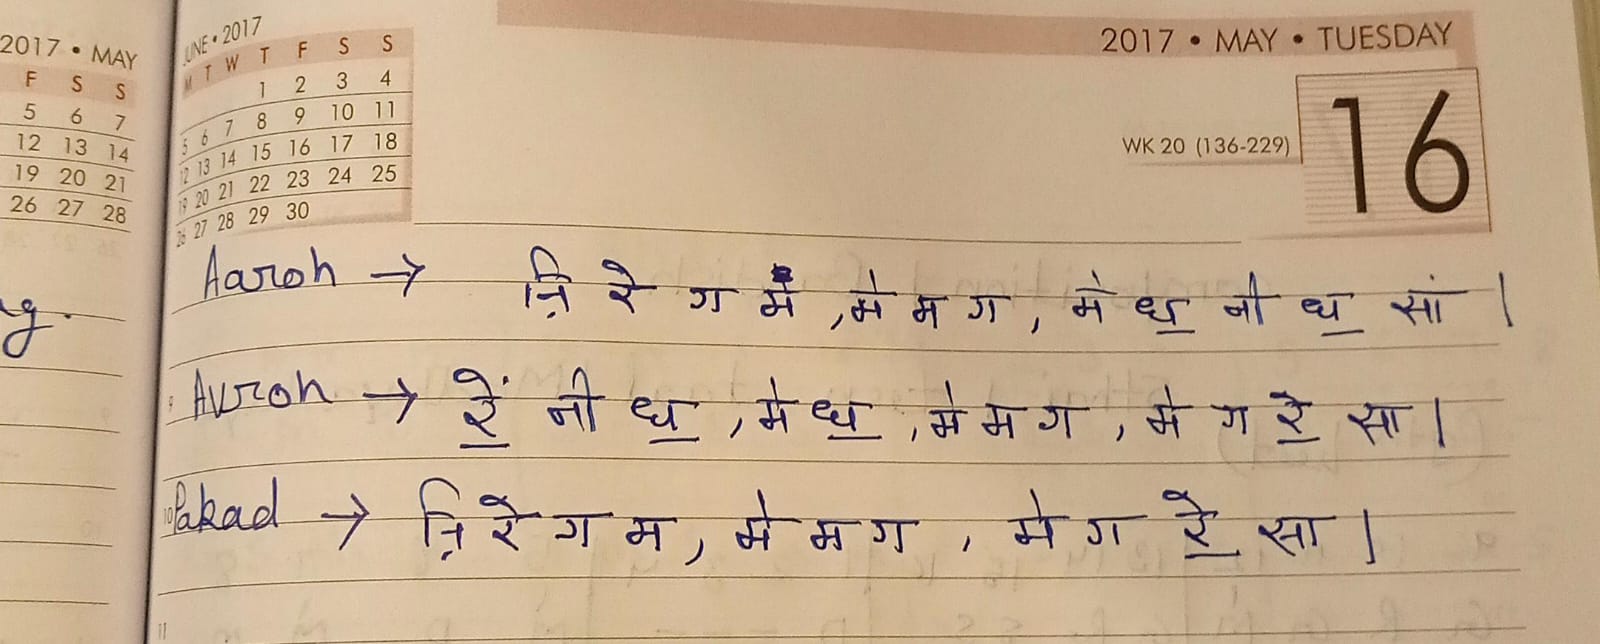 2017 • MAY
F S S
5 6 7
12 13 14
19 20 21
26 27 28
g.
JUNE • 2017
M T W T F S S
1 2 3 4
5 6 7 8 9 10 11
12 13 14 15 16 17 18
19 20 21 22 23 24 25
26 27 28 29 30
2017 • MAY • TUESDAY
WK 20 (136-229)
16
Aaroh → ऩि रे ग म, मे म ग, मे ध॒ नी ध॒ सां |
9 Avroh → रें॒ नी ध॒, मे ध॒, मे म ग, मे ग रे॒ सा |
10 Pakad → ऩि रे ग म, मे म ग, मे ग रे॒ सा |
11